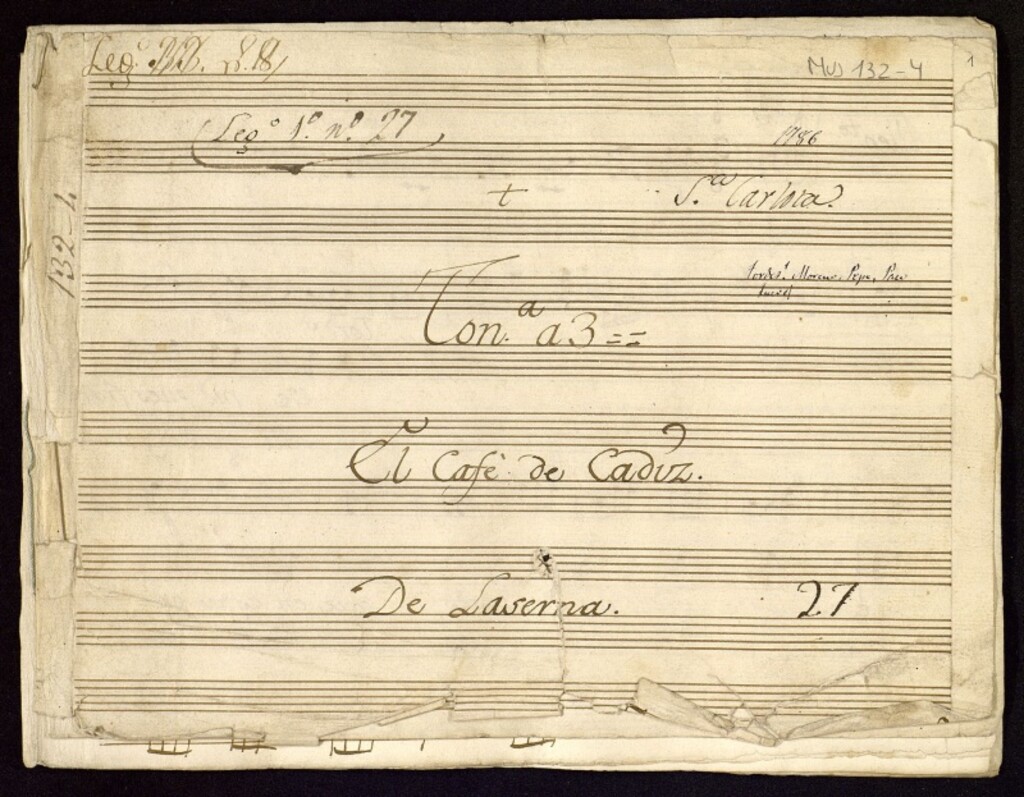 Leg.º nº. 18
Mus 132-4
1
Leg.º 1.º n.º 27
1786
+
S.ra Carlota.
132-4
Moreno, Pepe, Paco
Ton.a a 3 = =
El Cafè de Cadiz.
De Laserna.
27